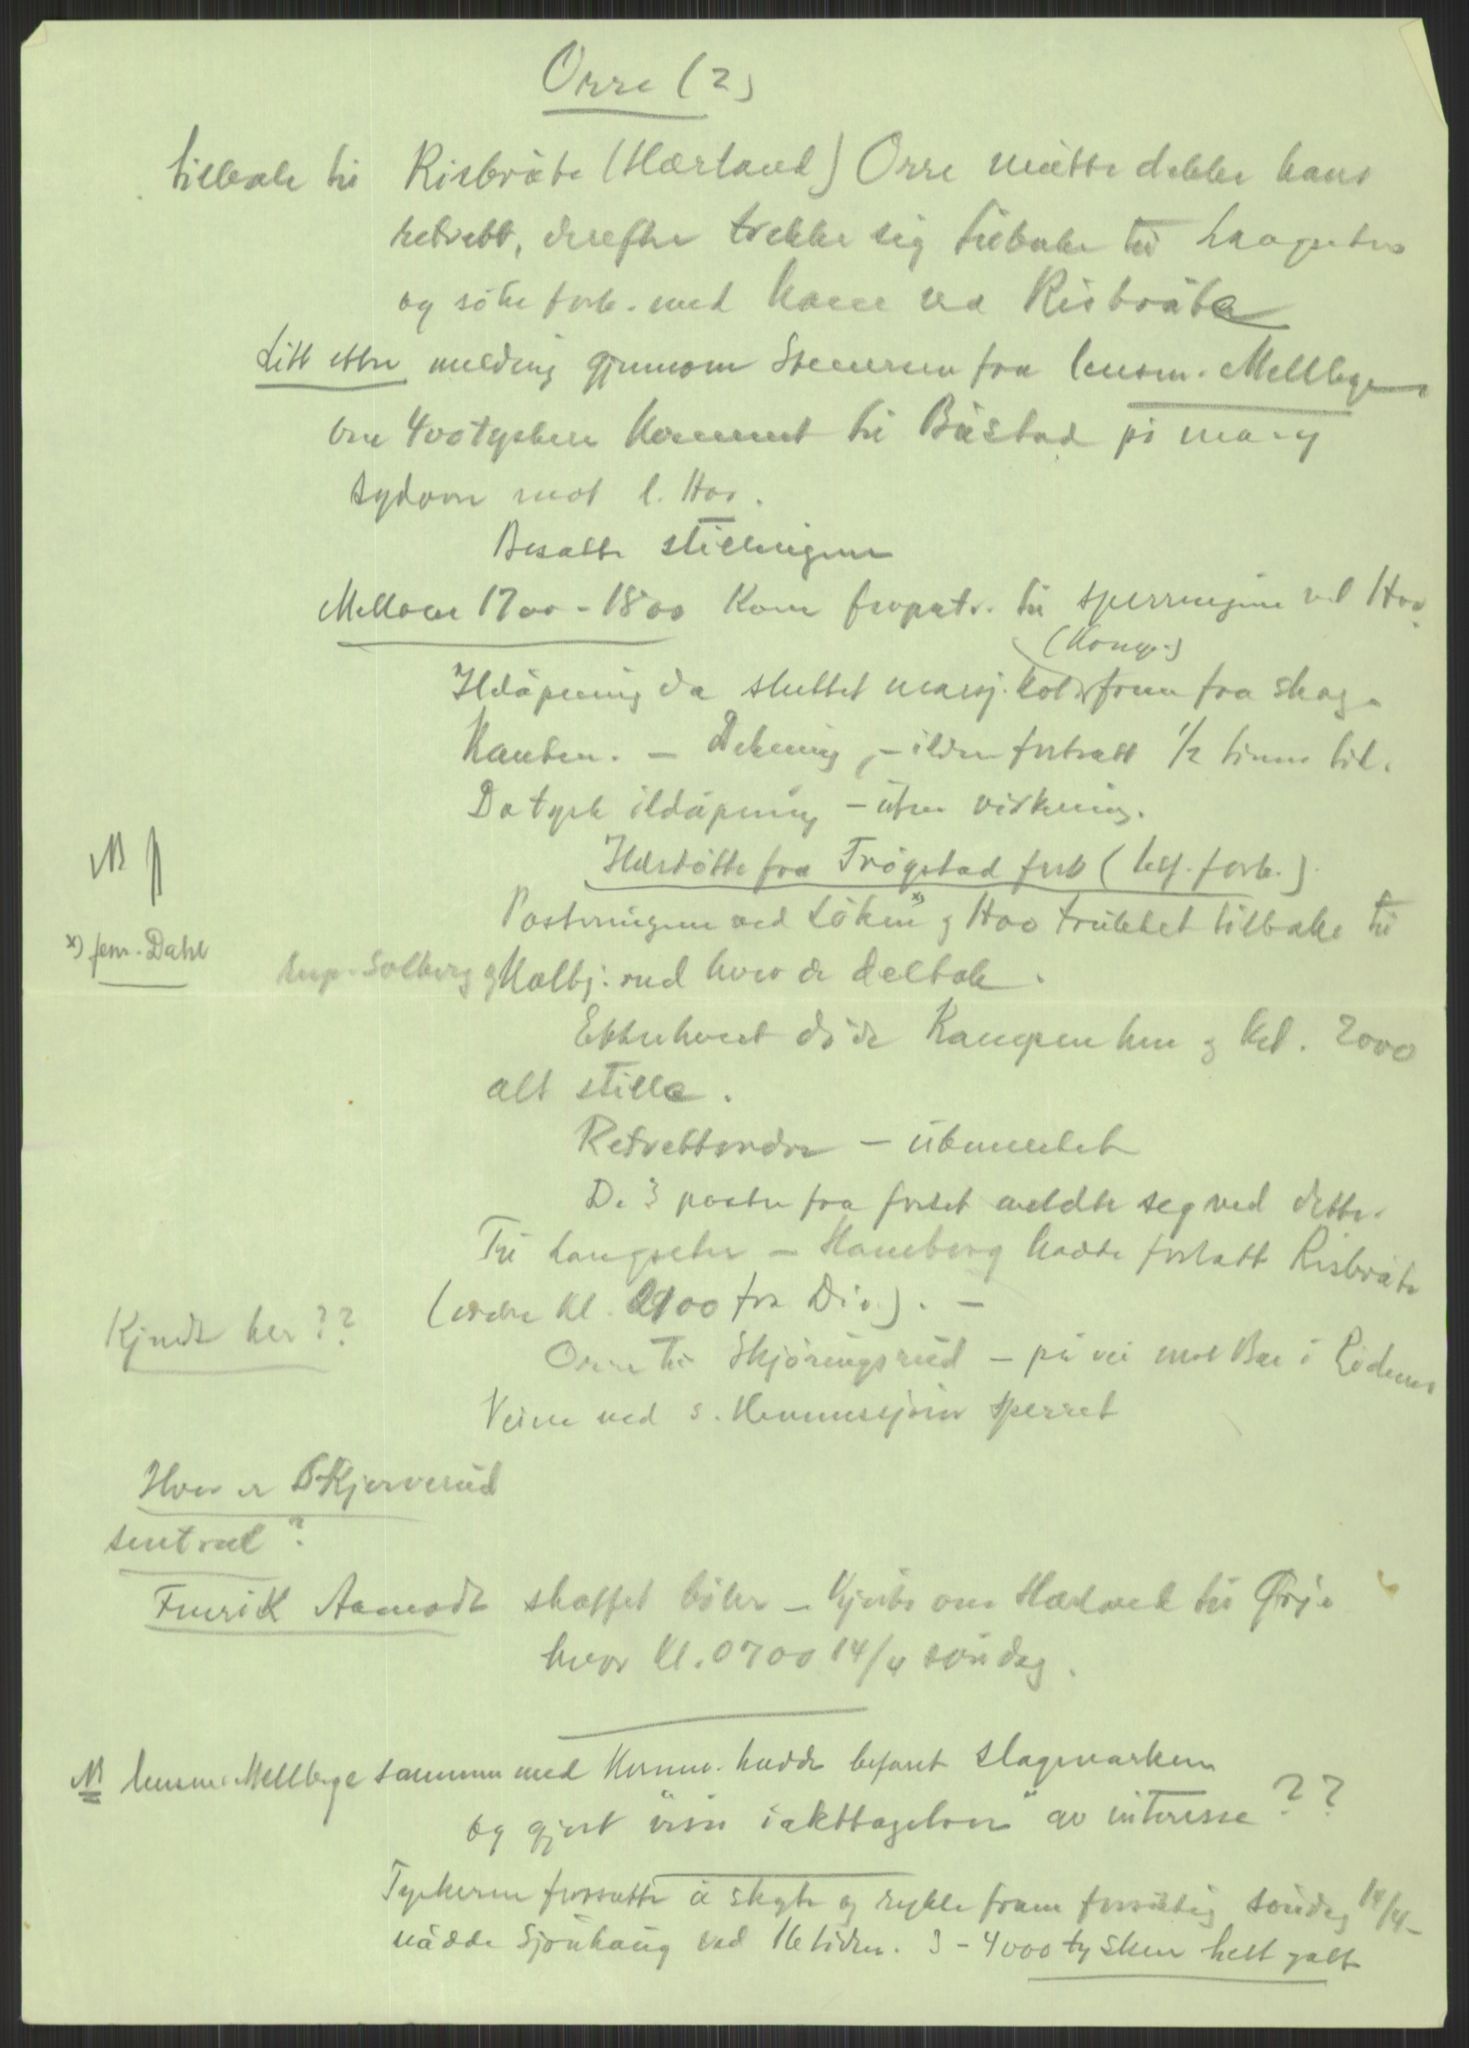 Orre (2)
tilbake til Risbråte (Hærland) Orre måtte dekke hans
retrett, derefter trekke sig tilbake til Langseter
og söke forb. med ham ved Risbråte
Litt etter melding gjennem Stenersen fra lensm. Mellbye
om 400 tyskere kommet til Båstad på marsj
sydover mot l. Hov.
Besatte stillingene
Mellem 1700 - 1800 kom forpatr. til sperringene ved Hov.
(komp.)
Ildåpning da sluttet marsj.kol. frem fra skog-
kanten. - Dekning, - ilden fortsatt 1/2 time til.
Da tysk ildåpning - uten virkning.
Ildstøtte fra Trøgstad forb (tlf. forb.).
NB
Posteringene ved Löken x) og Hov trukket tilbake til
x) fenr. Dahl
hhp. Solberg og Kalbj.rud hvor de deltok.
Etterhvert döde kampen hen og kl. 2000
alt stille.
Retrettordre - ubemerket
De 3 poster fra forset meldte seg ved dette.
Til Langseter - Haneborg hadde forlatt Risbråte
(ordre kl. 2100 fra Div.). -
Kjendt her??
Orre til Skjøringsrud - på vei mot Bøe i Rödenes
Veiene ved s. Hemnessjöen sperret
Hvor er Skjerverud
sentral?
Fenrik Aamodt skaffet biler - kjörte om Hærland til Ørje
hvor kl. 0700 14/4 söndag.
NB lensm. Mellbye sammen med Komm. hadde befaret slagmarken
og gjort "visse iakttagelser" av interesse??
Tyskerne fortsatte å skyte og rykke fram forsiktig söndag 14/4 -
nådde Sjöhaug ved 16 tiden. 3 - 4000 tyskere helt galt